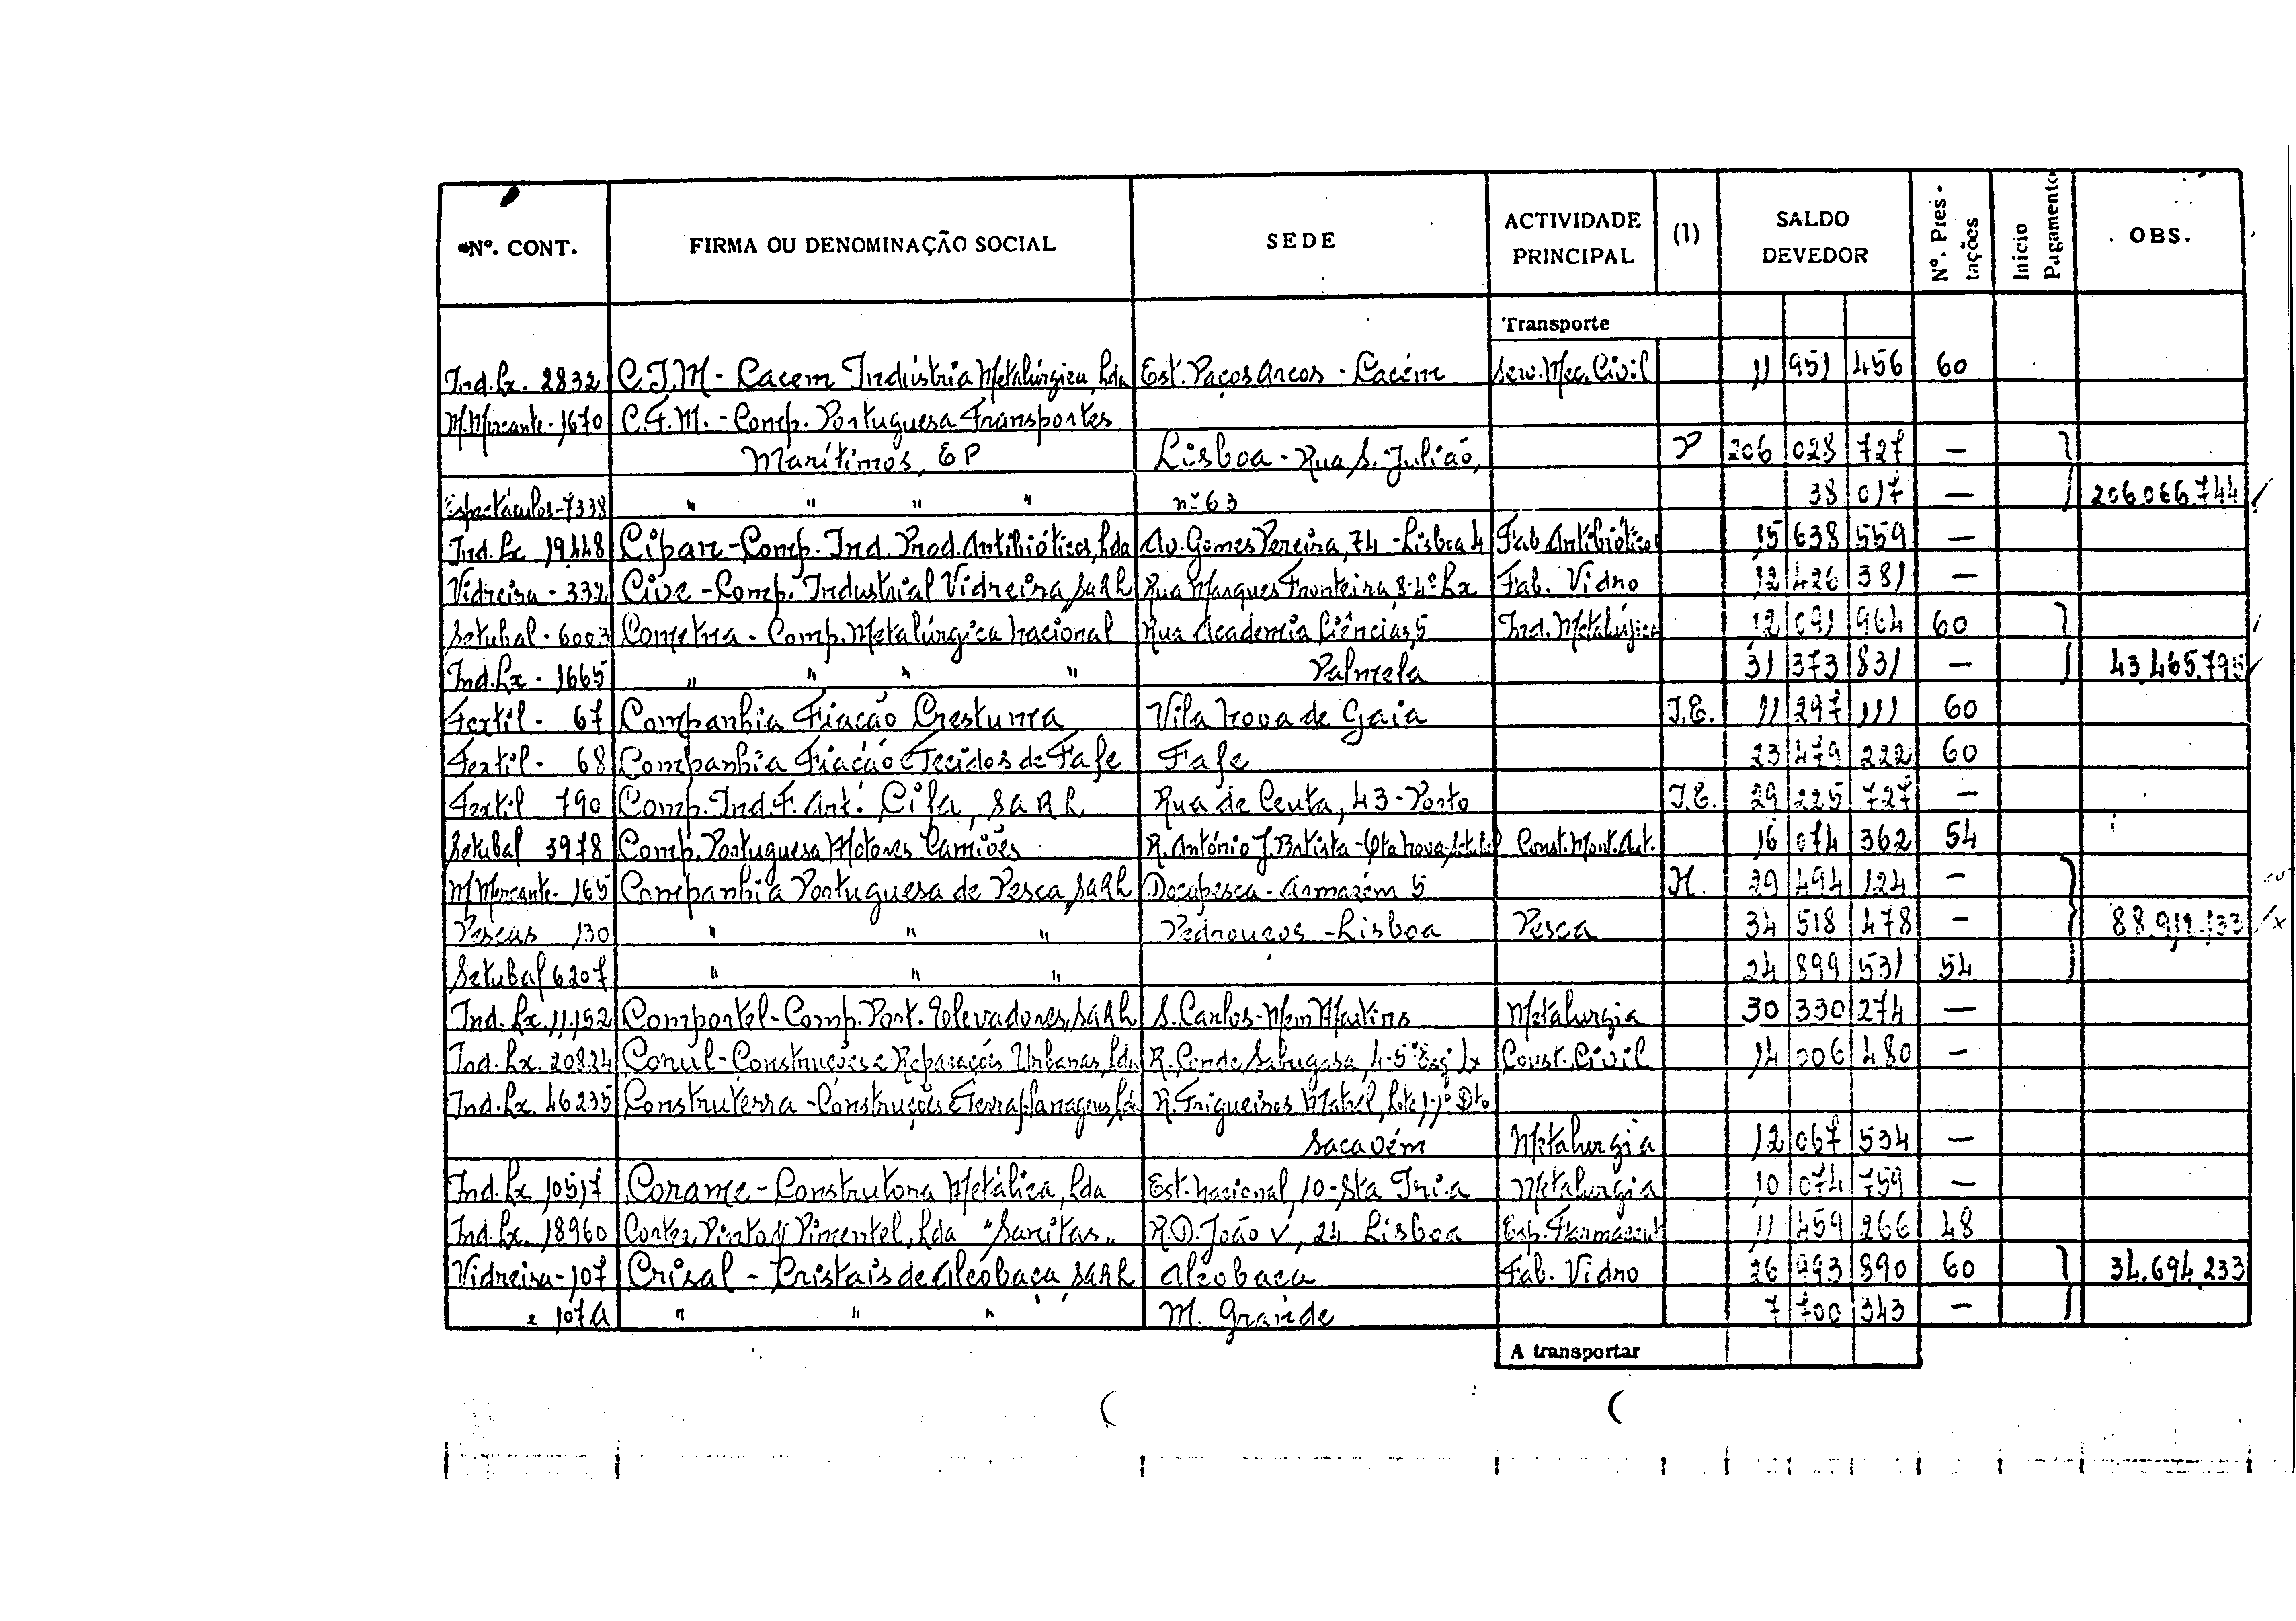 Nº. CONT. FIRMA OU DENOMINAÇÃO SOCIAL SEDE ACTIVIDADE PRINCIPAL (1) SALDO DEVEDOR Nº. Pres-tações Início Pagamento OBS.
Transporte
Ind. Lx. 2832 C.I.M - Cacem Indústria Metalúrgica, Lda Est. Paços Arcos - Cacém Serv. Mec. Civil 11 951 456 60
M. Mercante - 1670 C.T.M. - Comp. Portuguesa Transportes
Marítimos, EP Lisboa - Rua S. Julião, P 206 028 727 —
Espectáculos - 7338 " " " " nº 63 38 017 — 206.066.744
Ind. Lx 19448 Cipan - Comp. Ind. Prod. Antibióticos, Lda Av. Gomes Pereira, 74 - Lisboa 4 Fab Antibióticos 15 638 559 —
Vidreira - 332 Cive - Comp. Industrial Vidreira, SARL Rua Marques Fronteira, 8-4º Lx Fab. Vidro 12 426 381 —
Setubal - 6003 Cometna - Comp. Metalúrgica Nacional Rua Academia Ciências, 5 Ind. Metalúrgica 12 091 964 60
Ind. Lx - 1665 " " " " Palmela 31 373 831 — 43.465.795
Textil - 67 Companhia Fiacão Crestuma Vila Nova de Gaia I.E. 11 297 111 60
Textil - 68 Companhia Fiação e Tecidos de Fafe Fafe 23 479 222 60
Textil 790 Comp. Ind. F. Art. Cifa, SARL Rua de Ceuta, 43 - Porto I.E. 29 225 727 —
Setubal 3978 Comp. Portuguesa Motores Camiões R. António J. Batista - Qta Nova - Setubal Const. Mont. Aut. 16 074 362 54
M Mercante - 165 Companhia Portuguesa de Pesca, SARL Docapesca - Armazém 5 H. 29 494 124 —
Pescas 130 " " " Pedrouços - Lisboa Pesca 34 518 478 — 88.912.133
Setubal 6207 " " " 24 899 531 54
Ind. Lx. 11.152 Comportel - Comp. Port. Elevadores, SARL S. Carlos - Mem Martins Metalurgia 30 330 274 —
Ind. Lx. 20824 Conul - Construções e Reparações Urbanas, Lda R. Conde Sabugosa, 4-5º Esq. Lx Const. Civil 14 006 480 —
Ind. Lx. 46235 Construterra - Construções e Terraplanagens, Lda R. Trigueiros Martel, Lote 1-1º Dto
Sacavém Metalurgia 12 067 534 —
Ind. Lx 10517 Corame - Construtora Metálica, Lda Est. Nacional, 10 - Sta Iria Metalurgia 10 074 759 —
Ind. Lx. 18960 Cortez, Pinto & Pimentel, Lda "Sanitas" R. D. João V, 24 Lisboa Esp. Farmaceut 11 459 266 48
Vidreira - 107 Crisal - Cristais de Alcobaça SARL Alcobaça Fab. Vidro 26 993 890 60 34.694.233
" 107A " " " M. Grande 7 700 343 —
A transportar